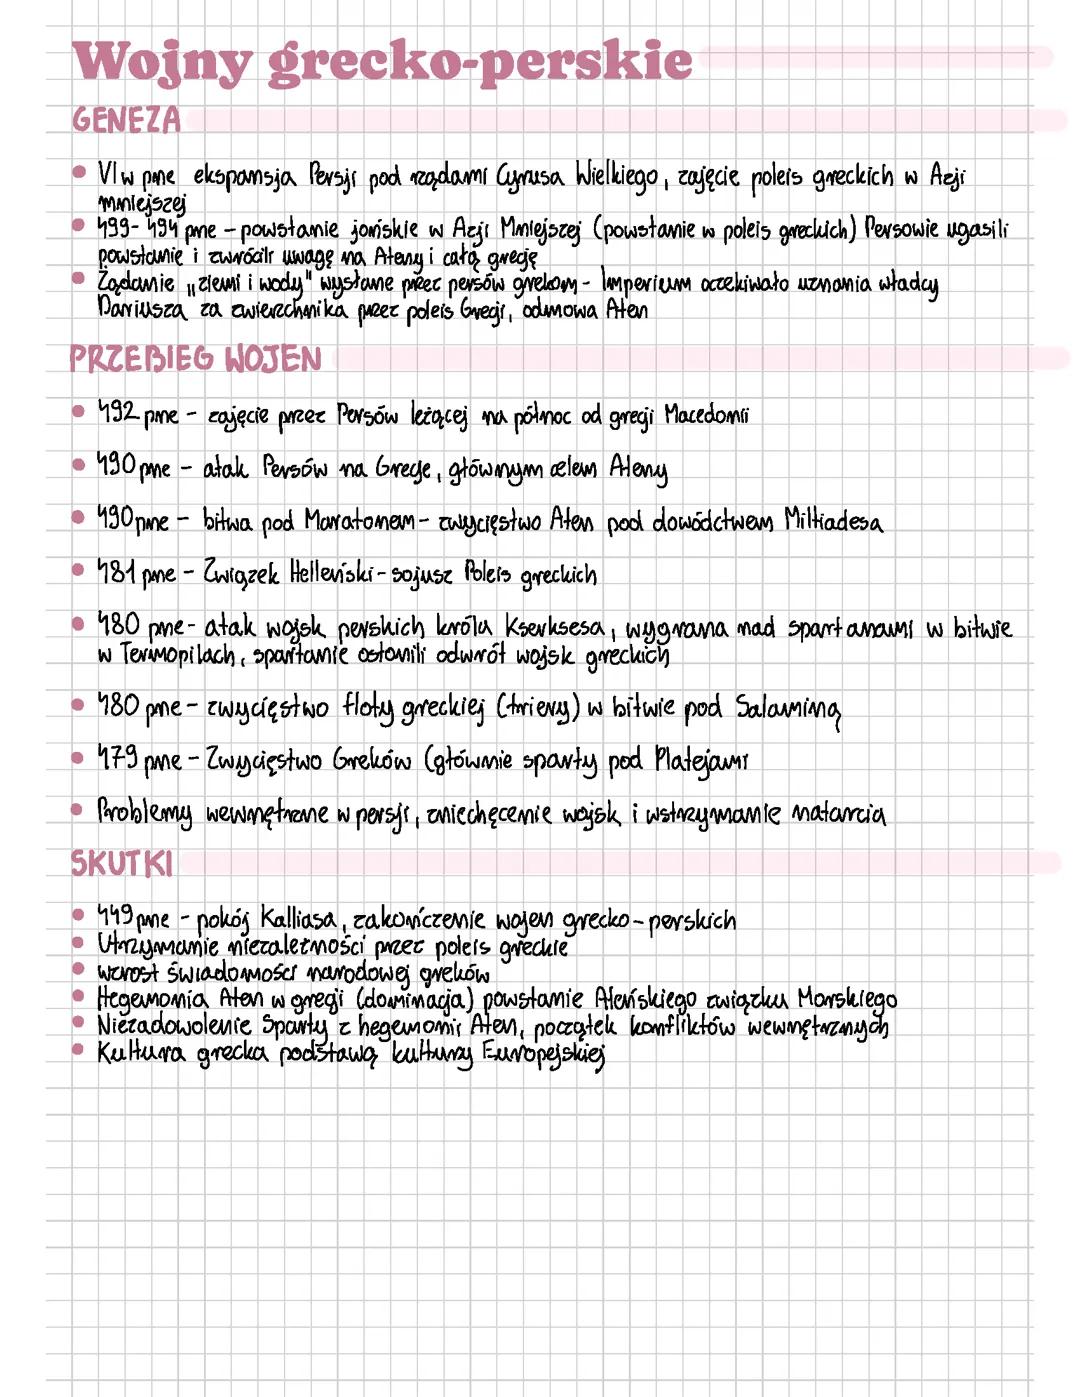 Wojny grecko-perskie
GENEZA
• VI w pne ekspansja Persji pod rządami Cyrusa Wielkiego, zajęcie poleis greckich w Azji
mniejszej
• 499-494 pne - powstanie jońskie w Azji Mniejszej (powstanie w poleis greckich) Persowie ugasili
powstanie i zwrócili uwagę na Ateny i całą grecję
• Żądanie „ziemi i wody" wysłane przez persów grekom - Imperium oczekiwało uznania władcy
Dariusza za zwierzchnika przez poleis Grecji, odmowa Aten
PRZEBIEG WOJEN
• 492 pne - zajęcie przez Persów leżącej na północ od grecji Macedonii
• 490 pne - atak Persów na Grecję, głównym celem Ateny
• 490 pne - bitwa pod Maratonem - zwycięstwo Aten pod dowództwem Miltiadesa
• 481 pne - Związek Helleński - sojusz Poleis greckich
• 480 pne - atak wojsk perskich króla Kserksesa, wygrana nad spartanami w bitwie
w Termopilach, spartanie osłonili odwrót wojsk greckich
• 480 pne - zwycięstwo floty greckiej (triery) w bitwie pod Salaminą
• 479 pne - Zwycięstwo Greków (głównie sparty pod Platejami
• Problemy wewnętrzne w persji, zniechęcenie wojsk i wstrzymanie natarcia
SKUTKI
• 449 pne - pokój Kalliasa, zakończenie wojen grecko-perskich
• Utrzymanie niezależności przez poleis greckie
• wzrost świadomości narodowej greków
• Hegemonia Aten w grecji (dominacja) powstanie Ateńskiego związku Morskiego
• Niezadowolenie Sparty z hegemonii Aten, początek konfliktów wewnętrznych
• Kultura grecka podstawą kultury Europejskiej